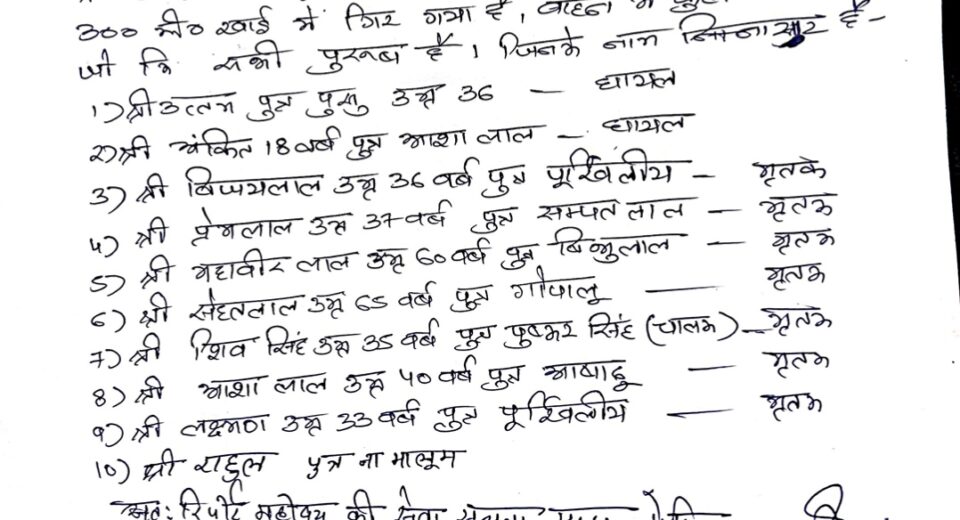 300 मी० खाई में गिर गया है, वाहन में
जो कि सभी पुरूष है। जिनके नाम निम्नासार है-
1) श्री उत्तम पुत्र पुसु उम्र 36 — घायल
2) श्री अंकित 18 वर्ष पुत्र आशा लाल — घायल
3) श्री विजयलाल उम्र 36 वर्ष पुत्र — मृतक
4) श्री प्रेमलाल उम्र 37 वर्ष पुत्र सम्पत लाल — मृतक
5) श्री महावीर लाल उम्र 60 वर्ष पुत्र — मृतक
6) श्री उम्र 65 वर्ष पुत्र गोपालू — मृतक
7) श्री शिव सिंह उम्र 35 वर्ष पुत्र पुष्कर सिंह (चालक) — मृतक
8) श्री आशा लाल उम्र 40 वर्ष पुत्र — मृतक
9) श्री लक्ष्मण उम्र 33 वर्ष पुत्र — मृतक
10) श्री राहुल पुत्र ना मालूम
अतः रिपोर्ट महोदय की सेवा